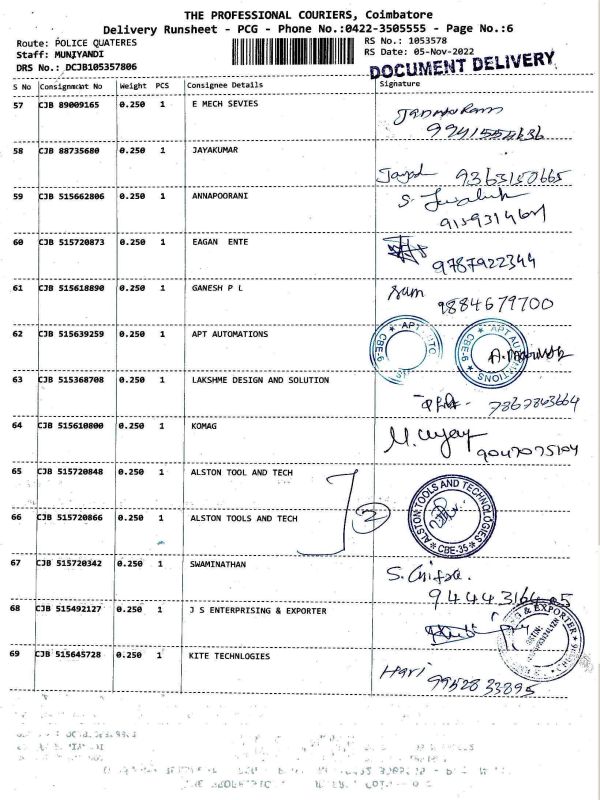 THE PROFESSIONAL COURIERS, Coimbatore
Delivery Runsheet - PCG - Phone No.:0422-3505555 - Page No.:6
Route: POLICE QUATERES
RS No.: 1053578
Staff: MUNIYANDI
RS Date: 05-Nov-2022
DRS No.: DCJB105357806
DOCUMENT DELIVERY
S No Consignment No Weight PCS Consignee Details Signature
57 CJB 89009165 0.250 1 E MECH SEVIES
58 CJB 88735680 0.250 1 JAYAKUMAR
9363150665
59 CJB 515662806 0.250 1 ANNAPOORANI
60 CJB 515720873 0.250 1 EAGAN ENTE
9787922344
61 CJB 515618890 0.250 1 GANESH P L
Ram
9884679700
62 CJB 515639259 0.250 1 APT AUTOMATIONS
APT AUTO CBE-6
APT AUTOMATIONS CBE-6
63 CJB 515368708 0.250 1 LAKSHME DESIGN AND SOLUTION
7867843664
64 CJB 515610800 0.250 1 KOMAG
9047075104
65 CJB 515720848 0.250 1 ALSTON TOOL AND TECH
66 CJB 515720866 0.250 1 ALSTON TOOLS AND TECH
2
ALSTON TOOLS AND TECHNOLOGIES CBE-35
67 CJB 515720342 0.250 1 SWAMINATHAN
68 CJB 515492127 0.250 1 J S ENTERPRISING & EXPORTER
69 CJB 515645728 0.250 1 KITE TECHNLOGIES
Hari 9952833895